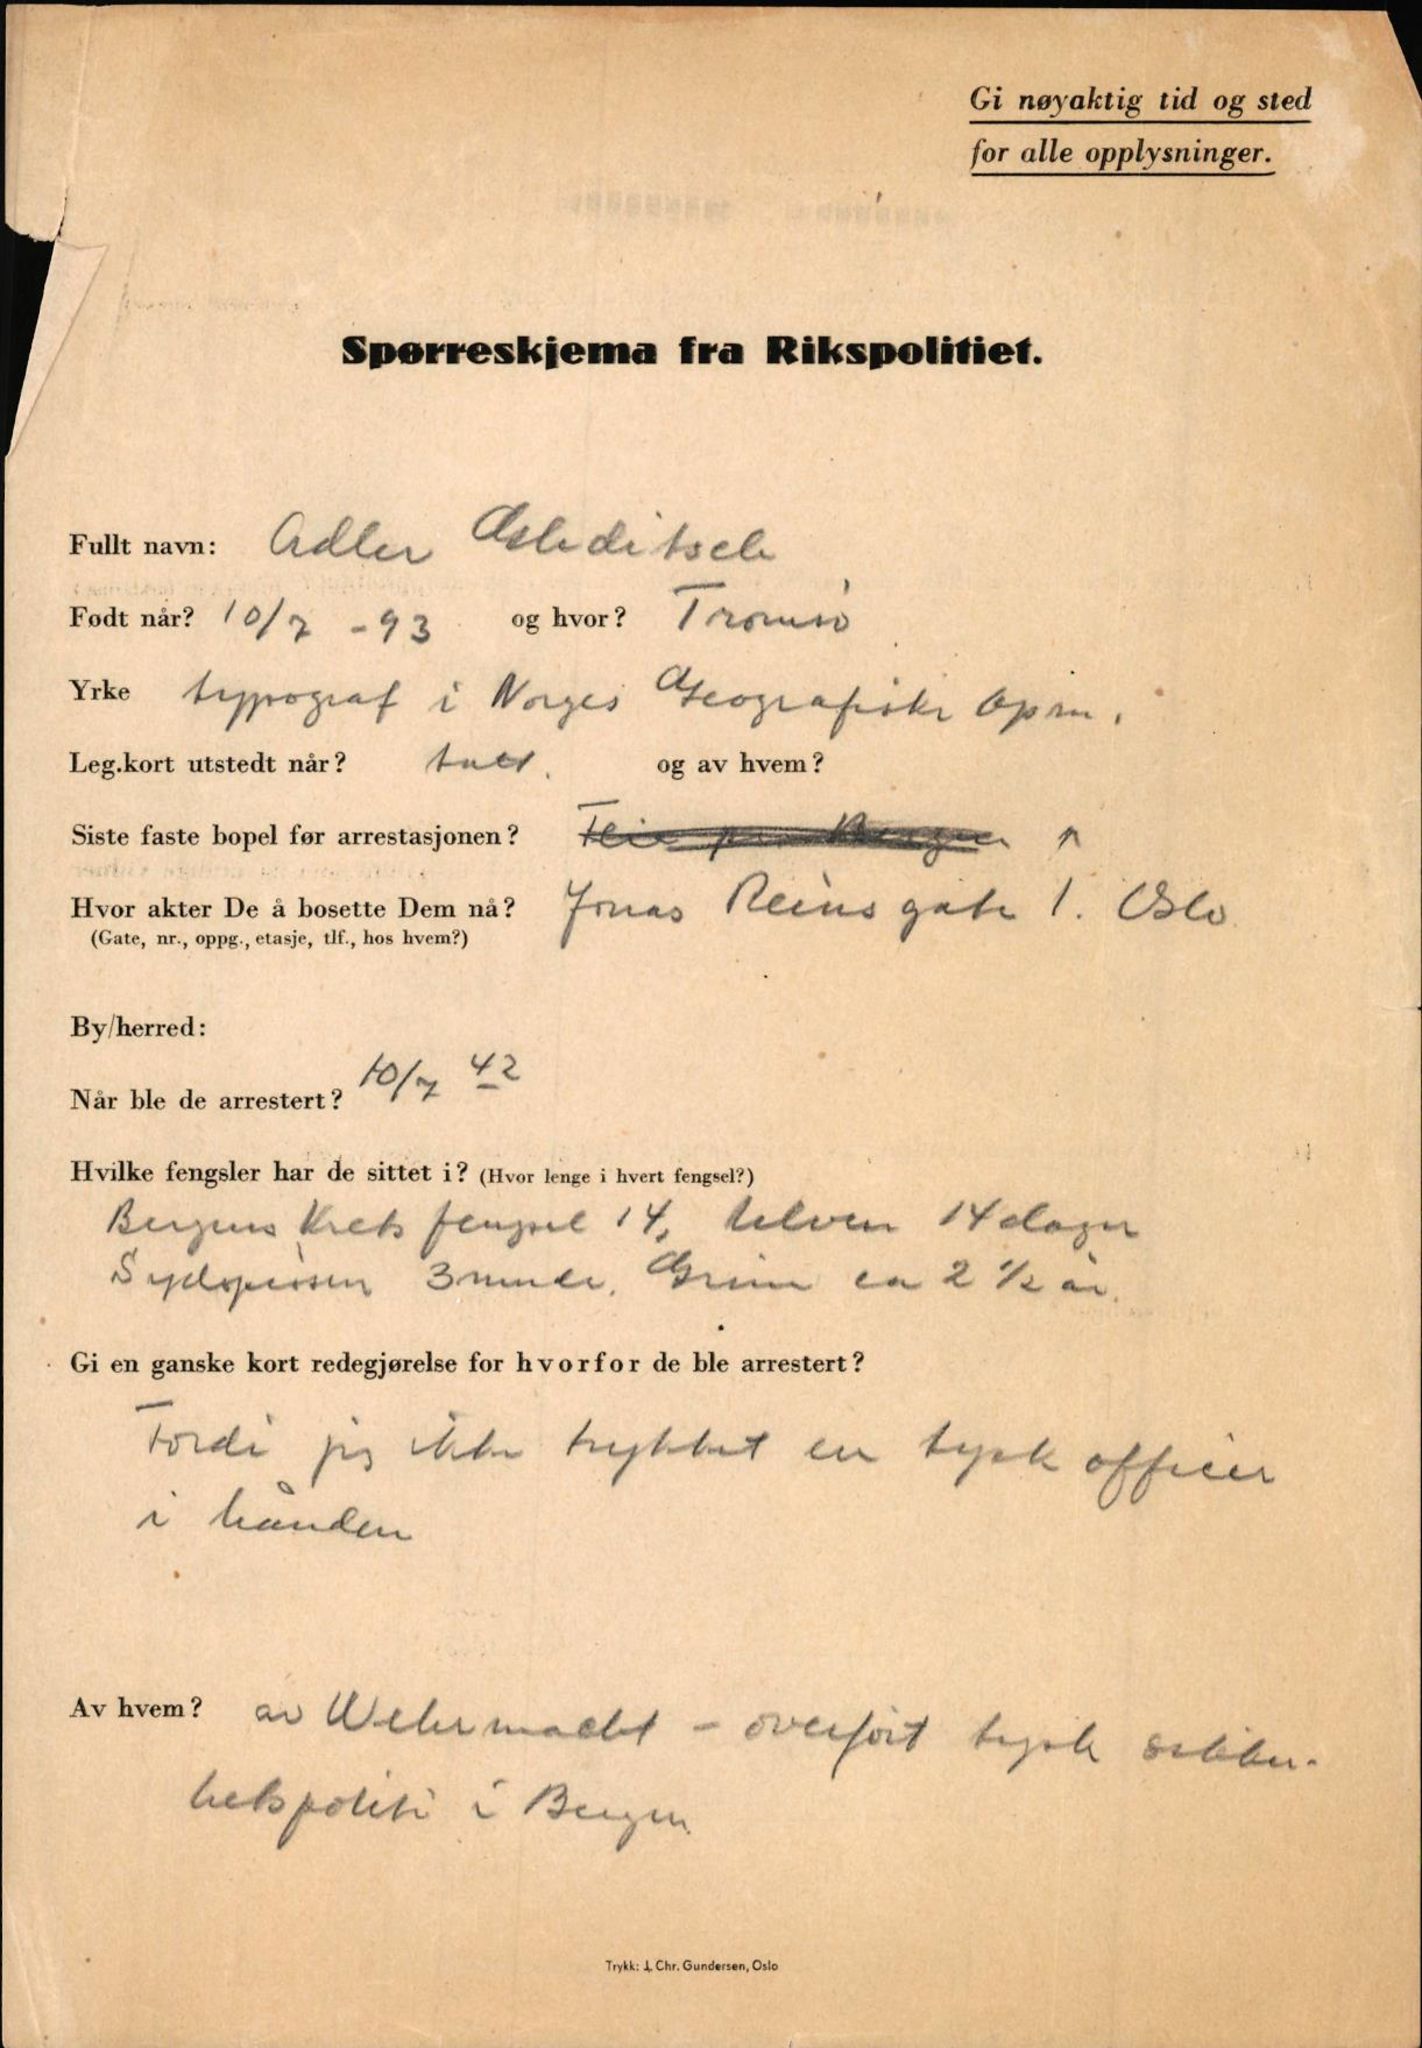 Gi nøyaktig tid og sted
for alle opplysninger.
Spørreskjema fra Rikspolitiet.
Fullt navn: Adler
Født når? 10/7 -93 og hvor? Tromsø
Yrke typograf i Norges Geografiske Opm.
Leg.kort utstedt når? og av hvem?
Siste faste bopel før arrestasjonen?
Hvor akter De å bosette Dem nå? Jonas Reins gate 1. Oslo
(Gate, nr., oppg., etasje, tlf., hos hvem?)
By/herred:
Når ble de arrestert? 10/7 42
Hvilke fengsler har de sittet i? (Hvor lenge i hvert fengsel?)
Bergens Krets fengsel 14, Ulven 14 dager
Sydspissen 3 mndr. Grini ca 2 ½ år.
Gi en ganske kort redegjørelse for hvorfor de ble arrestert?
Fordi jeg ikke trykket en tysk officer
i hånden
Av hvem? av Wehrmacht - overført tysk sikker-
hetspoliti i Bergen
Trykk: J. Chr. Gundersen, Oslo